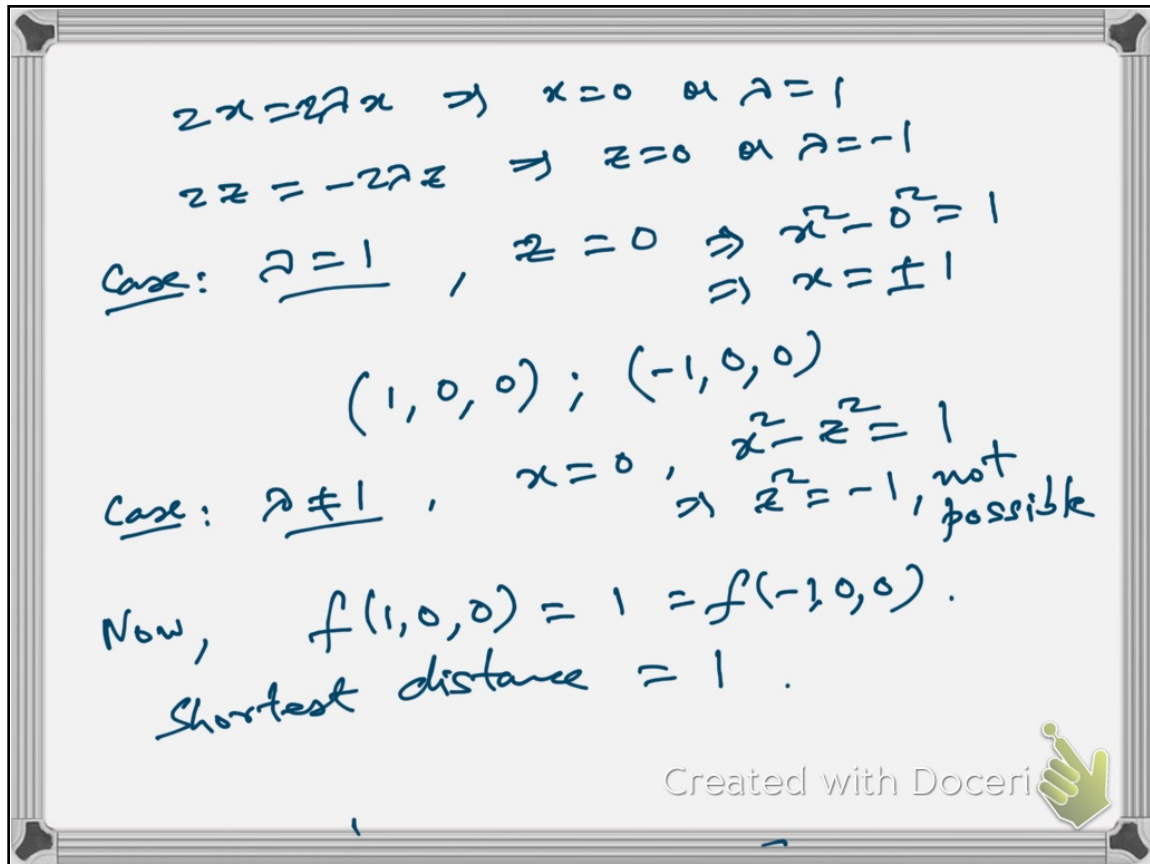 2x = 2λx ⇒ x = 0 or λ = 1
2z = -2λz ⇒ z = 0 or λ = -1
Case: λ = 1, z = 0 ⇒ x² - 0² = 1
⇒ x = ± 1
(1, 0, 0) ; (-1, 0, 0)
Case: λ ≠ 1, x = 0, x² - z² = 1
⇒ z² = -1, not possible
Now, f(1, 0, 0) = 1 = f(-1, 0, 0).
Shortest distance = 1.
Created with Doceri